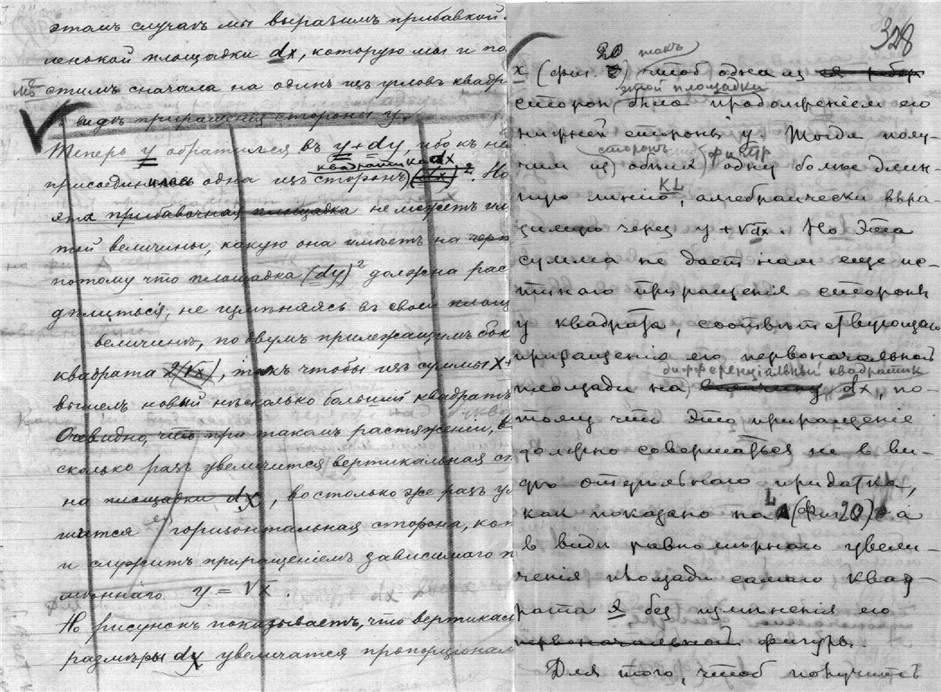 этомъ случаѣ мы выразимъ прибавкой
ленькой площадки dx, которую мы и по
стимъ сначала на одинъ изъ угловъ квадр
въ видѣ приращенія стороны y.
Теперь y обратился въ y + dy, ибо къ не
квадратика dx
присоединилась одна изъ сторонъ (dx)². Но
эта прибавочная площадка не можетъ им
той величины, какую она имѣетъ на черт
потому что площадка (dy)² должна рас
дѣлиться, не измѣняясь въ своей площ
величинѣ, по двумъ прилежащимъ бок
квадрата 2(√x), такъ чтобы изъ суммы x +
вышелъ новый нѣсколько большій квадратъ
Очевидно, что при такомъ растяженіи, во
сколько разъ увеличится вертикальная ст
на площадки dx, во столько же разъ ум
шится ея горизонтальная сторона, кот
и служитъ приращеніемъ зависимаго п
мѣннаго y = √x.
Но рисунокъ показываетъ, что вертикал
размѣры dx увеличатся пропорціонал
328
x (фиг. 20) такъ чтоб одна из
этой площадки
сторон была продолженіем его
нижней стороны y. Тогда полу-
сторонъ фигур
чим из обѣих одну болѣе длин-
ную линію KL, алгебраически выра-
зимую через y + √dx. Но эта
сумма не даст нам еще ис-
тиннаго приращенія стороны
y квадрата, соотвѣтствующаго
приращенію его первоначальной
дифференціальный квадратик
площади на величину dx, по-
тому что это приращеніе
должно совершаться не в ви-
дѣ отдѣльнаго придатка,
как показано на L (фиг 20) а
в виде равномѣрнаго увели-
ченія площади самаго квад-
рата x без измѣненія его
первоначальной фигуры.
Для того, чтоб получить